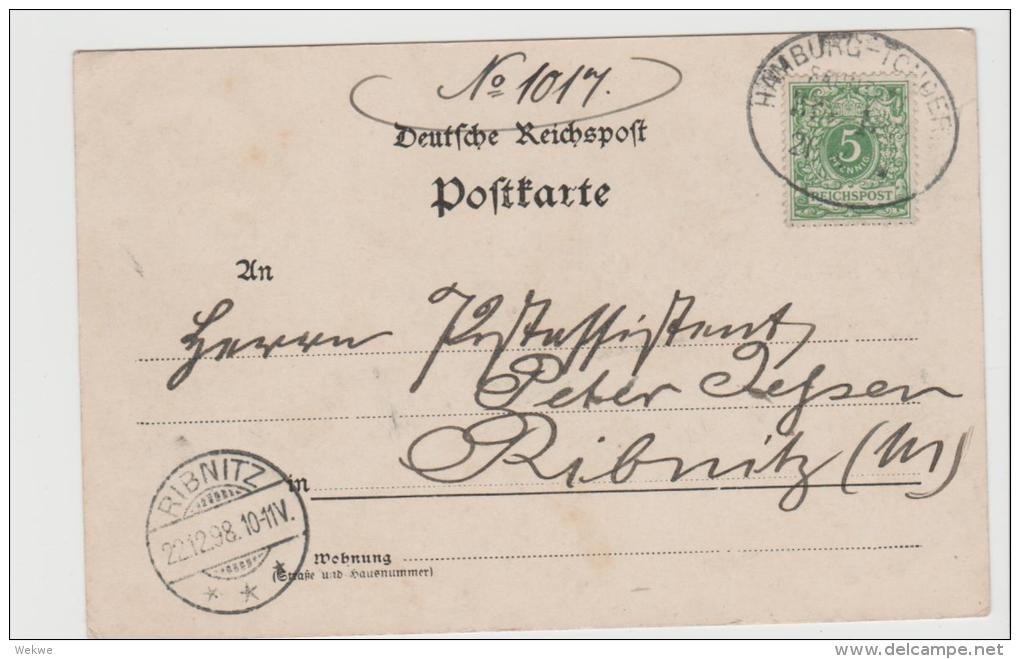 No 1017.
HAMBURG-TONDER.
Deutsche Reichspost
Postkarte
5
PFENNIG
REICHSPOST
An
Herrn Postassistent
Peter Jepsen
Ribnitz (M)
in
RIBNITZ
22.12.98.10-11V.
* * *
Wohnung
(Straße und Hausnummer)
Wekwe
delcampe.net